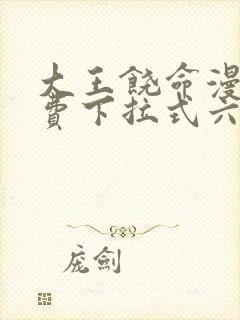 大王饶命漫
费下拉式六
庞剑